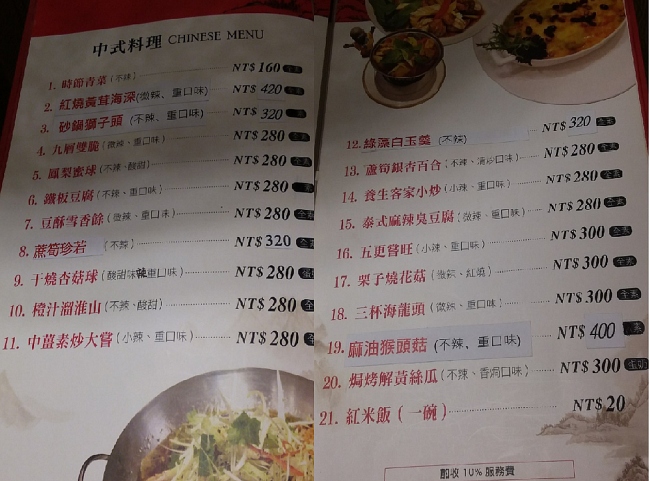 中式料理 CHINESE MENU
1. 時節青菜(不辣) NT$160 全素
2. 紅燒黃茸海深(微辣、重口味) NT$ 420 全素
3. 砂鍋獅子頭 (不辣、重口味) NT$ 320
4. 九層雙脆(微辣、重口味) NT$280
5. 鳳梨蜜球(不辣、酸甜) NT$280
6. 鐵板豆腐(不辣、重口味) NT$280
7. 豆酥雪香餘(微辣、重口味) NT$280 全素
8. 蔴筍珍若 (不辣) NT$ 320
9. 干燒杏菇球(酸甜味辣重口味) NT$280
10. 橙汁溜淮山(不辣、酸甜) NT$280
11. 中薑素炒大嘗(小辣、重口味) NT$280
12. 綠藻白玉羹 (不辣) NT$ 320 全素
13. 蘆筍銀杏百合(不辣、清炒口味) NT$280 全素
14. 養生客家小炒(小辣、重口味) NT$280 全素
15. 泰式麻辣臭豆腐(微辣、重口味) NT$280 全素
16. 五更嘗旺(小辣、重口味) NT$300 全素
17. 栗子燒花菇(微辣、紅燒) NT$300 全素
18. 三杯海龍頭(微辣、重口味) NT$300 全素
19. 麻油猴頭菇(不辣、重口味) NT$ 400 素
20. 焗烤解黃絲瓜(不辣、香焗口味) NT$300
21. 紅米飯(一碗) NT$20
酌收10%服務費